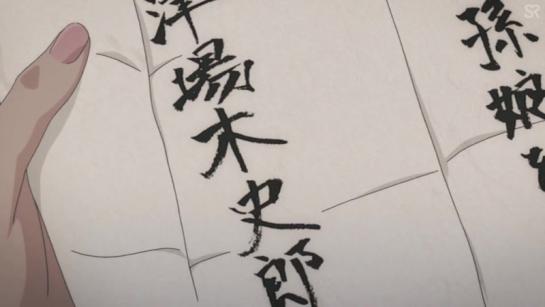 孫娘
津場木史郎
SR